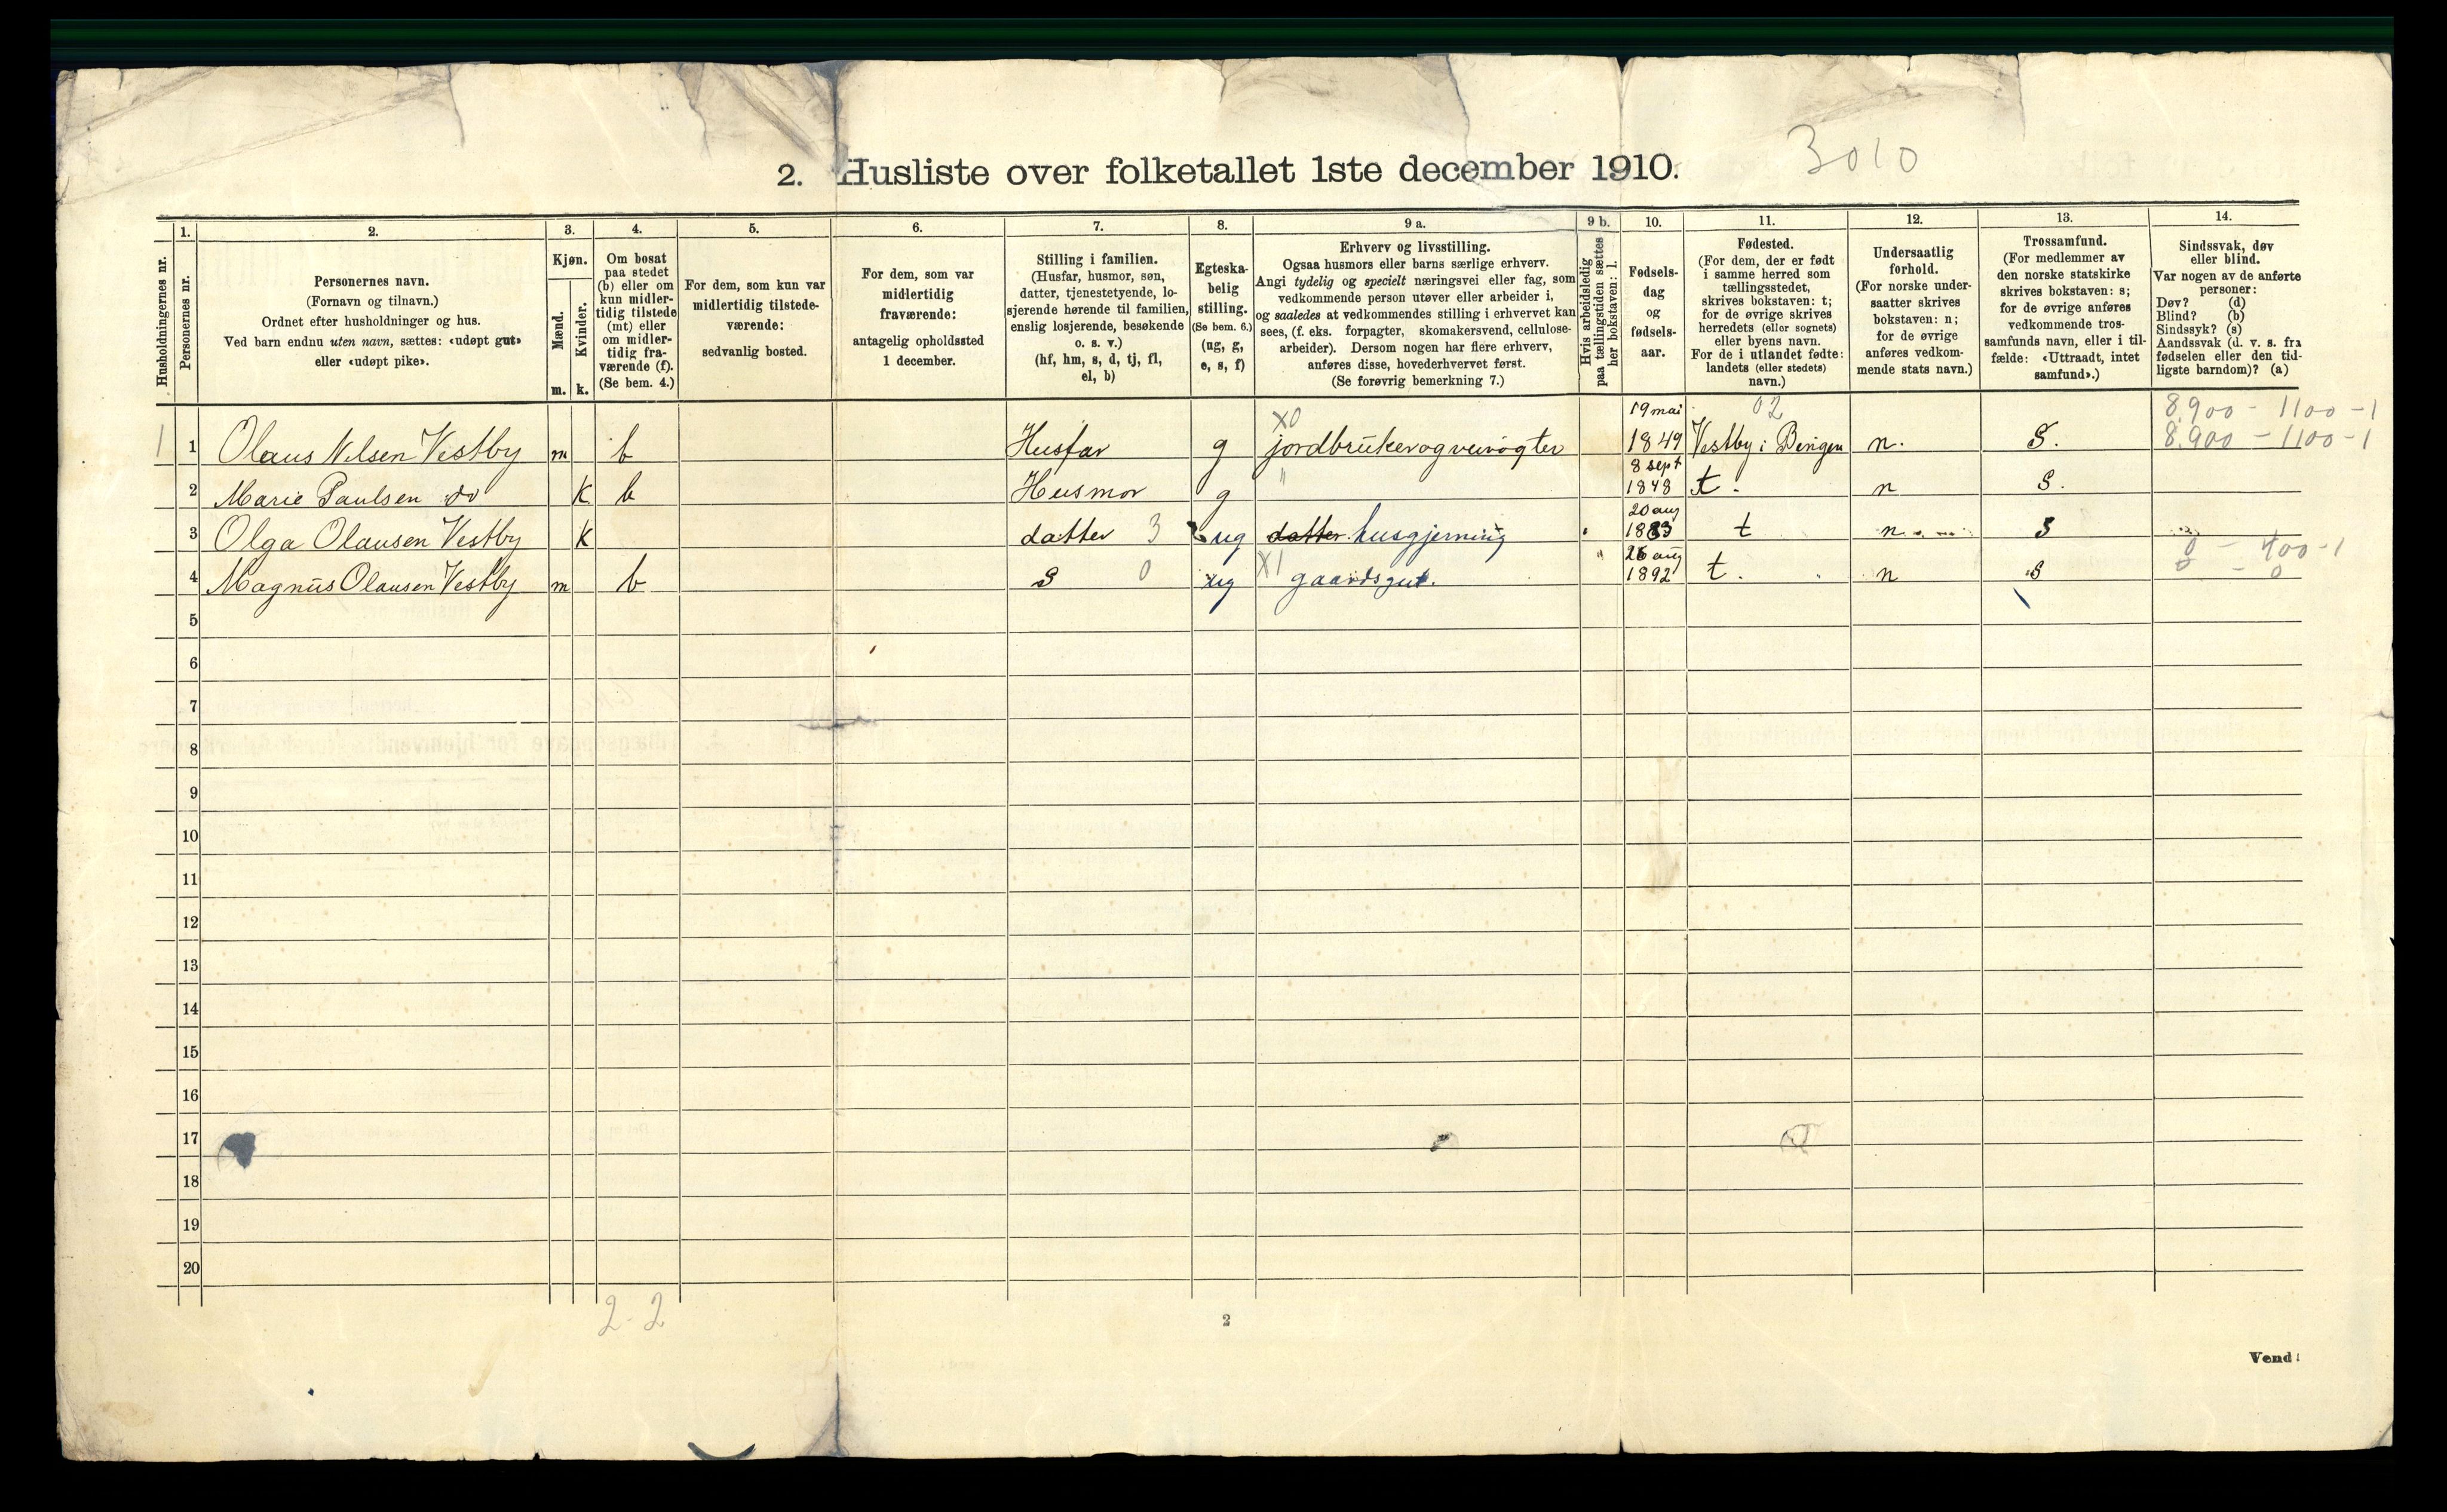 2. Husliste over folketallet 1ste december 1910.
3010
Husholdningernes nr.
1.
Personernes nr.
2.
Personernes navn.
(Fornavn og tilnavn.)
Ordnet efter husholdninger og hus.
Ved barn endnu uten navn, sættes: «udøpt gut»
eller «udøpt pike».
3.
Kjøn.
Mænd.
Kvinder.
m. k.
4.
Om bosat
paa stedet
(b) eller om
kun midler-
tidig tilstede
(mt) eller
om midler-
tidig fra-
værende (f).
(Se bem. 4.)
5.
For dem, som kun var
midlertidig tilstede-
værende:
sedvanlig bosted.
6.
For dem, som var
midlertidig
fraværende:
antagelig opholdssted
1 december.
7.
Stilling i familien.
(Husfar, husmor, søn,
datter, tjenestetyende, lo-
sjerende hørende til familien,
enslig losjerende, besøkende
o. s. v.)
(hf, hm, s, d, tj, fl,
el, b)
8.
Egteska-
belig
stilling.
(Se bem. 6.)
(ug, g,
e, s, f)
9 a.
Erhverv og livsstilling.
Ogsaa husmors eller barns særlige erhverv.
Angi tydelig og specielt næringsvei eller fag, som
vedkommende person utøver eller arbeider i,
og saaledes at vedkommendes stilling i erhvervet kan
sees, (f. eks. forpagter, skomakersvend, cellulose-
arbeider). Dersom nogen har flere erhverv,
anføres disse, hovederhvervet først.
(Se forøvrig bemerkning 7.)
9 b.
Hvis arbeidsledig
paa tællingstiden sættes
her bokstaven: l.
10.
Fødsels-
dag
og
fødsels-
aar.
11.
Fødested.
(For dem, der er født
i samme herred som
tællingsstedet,
skrives bokstaven: t;
for de øvrige skrives
herredets (eller sognets)
eller byens navn.
For de i utlandet fødte:
landets (eller stedets)
navn.)
12.
Undersaatlig
forhold.
(For norske under-
saatter skrives
bokstaven: n;
for de øvrige
anføres vedkom-
mende stats navn.)
13.
Trossamfund.
(For medlemmer av
den norske statskirke
skrives bokstaven: s;
for de øvrige anføres
vedkommende tros-
samfunds navn, eller i til-
fælde: «Uttraadt, intet
samfund».)
14.
Sindssvak, døv
eller blind.
Var nogen av de anførte
personer:
Døv? (d)
Blind? (b)
Sindssyk? (s)
Aandssvak (d. v. s. fra
fødselen eller den tid-
ligste barndom)? (a)
X0 19 mai 02 8.900 - 1100 - 1
1 1 Olaus Nilsen Vestby m b Husfar g jordbruker og veivogter 1849 Vestby i Berigen n. S. 8.900 - 1100 - 1
8 sept
2 Marie Paulsen do K b Husmor g " 1848 t. n S.
20 aug
3 Olga Olausen Vestby K datter 3 ug datter husgjerning 1883 t n S
X1 " 26 aug 0 - 400 - 1
4 Magnus Olausen Vestby m b S 0 ug gaardsgut. 1892 t. n S 0 - 0
5
6
7
8
9
10
11
12
13
14
15
16
17
18
19
20
2-2
2
Vend!